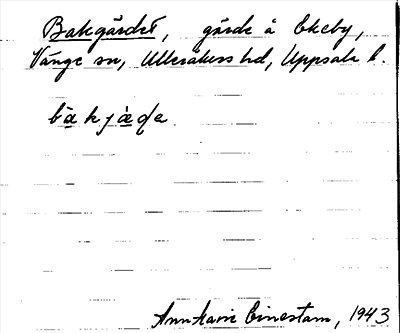 Bakgärdet, gärde å Ekeby,
Vänge sn, Ulleråkers hd, Uppsala l.
Ann Marie Einestam, 1943